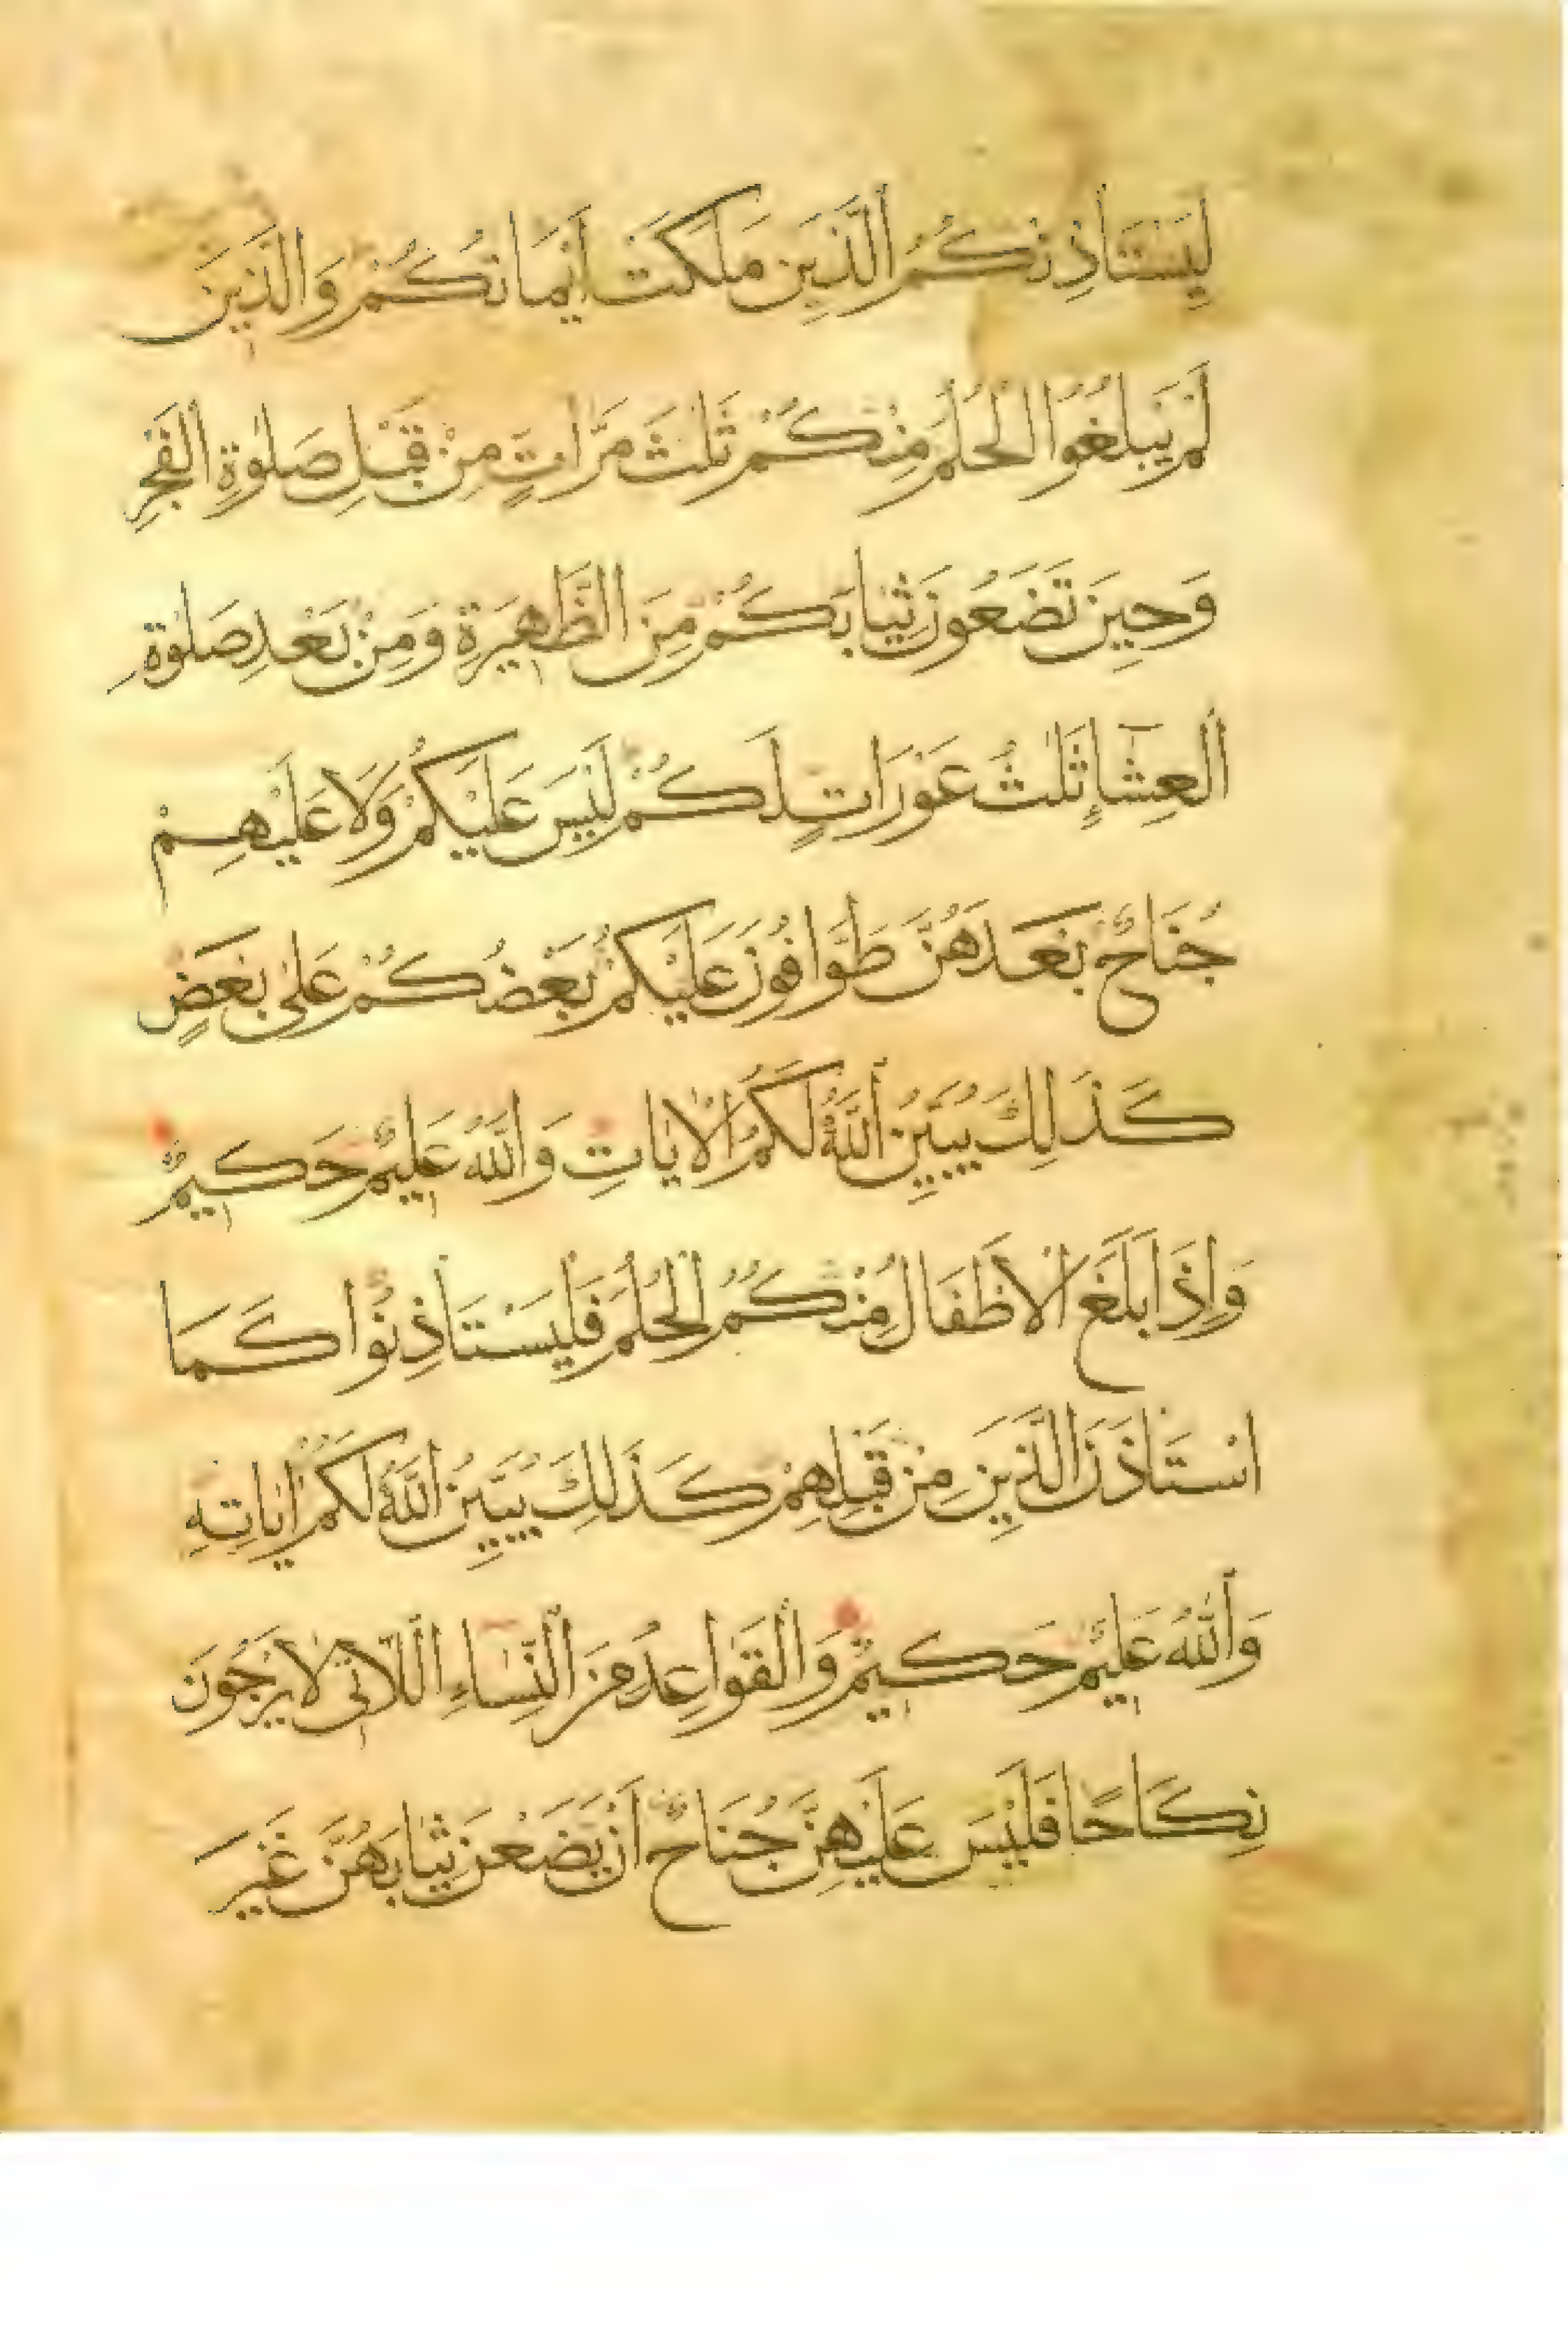 لِيَسْتَأْذِنْكُمُ الَّذِينَ مَلَكَتْ أَيْمَانُكُمْ وَالَّذِينَ
لَمْ يَبْلُغُوا الْحُلُمَ مِنْكُمْ ثَلٰثَ مَرَّاتٍ مِنْ قَبْلِ صَلٰوةِ الْفَجْرِ
وَحِينَ تَضَعُونَ ثِيَابَكُمْ مِنَ الظَّهِيرَةِ وَمِنْ بَعْدِ صَلٰوةِ
الْعِشَآءِ ثَلٰثُ عَوْرَاتٍ لَكُمْ لَيْسَ عَلَيْكُمْ وَلَا عَلَيْهِمْ
جُنَاحٌ بَعْدَهُنَّ طَوَّافُونَ عَلَيْكُمْ بَعْضُكُمْ عَلٰى بَعْضٍ
كَذَلِكَ يُبَيِّنُ اللَّهُ لَكُمُ الْاٰيَاتِ وَاللَّهُ عَلِيمٌ حَكِيمٌ
وَإِذَا بَلَغَ الْأَطْفَالُ مِنْكُمُ الْحُلُمَ فَلْيَسْتَأْذِنُوا كَمَا
اسْتَأْذَنَ الَّذِينَ مِنْ قَبْلِهِمْ كَذَلِكَ يُبَيِّنُ اللَّهُ لَكُمْ اٰيَاتِهِ
وَاللَّهُ عَلِيمٌ حَكِيمٌ وَالْقَوَاعِدُ مِنَ النِّسَاءِ اللَّاتِي لَا يَرْجُونَ
نِكَاحًا فَلَيْسَ عَلَيْهِنَّ جُنَاحٌ أَنْ يَضَعْنَ ثِيَابَهُنَّ غَيْرَ